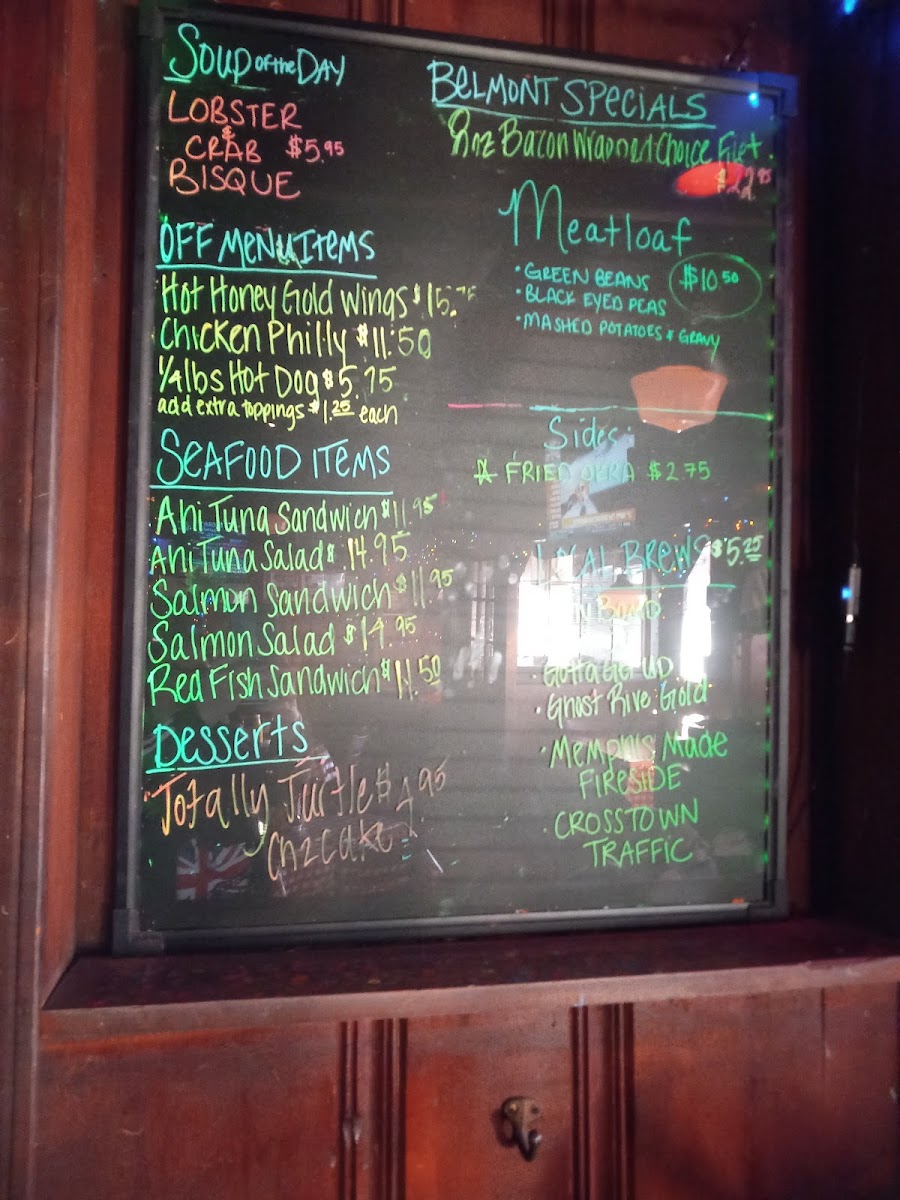 SOUP OF THE DAY
LOBSTER
&
CRAB $5.95
BISQUE
OFF MENU ITEMS
Hot Honey Gold Wings $15.75
Chicken Philly $11.50
1/4 lbs Hot Dog $5.75
add extra toppings $1.25 each
SEAFOOD ITEMS
Ahi Tuna Sandwich $11.95
Ahi Tuna Salad $14.95
Salmon Sandwich $11.95
Salmon Salad $14.95
Red Fish Sandwich $11.50
Desserts
Totally Turtle $4.95
Chzcake
BELMONT SPECIALS
8oz Bacon Wrapped Choice Filet
$22.95
Meatloaf
• GREEN BEANS $10.50
• BLACK EYED PEAS
• MASHED POTATOES & GRAVY
Sides:
FRIED OKRA $2.75
LOCAL BREWS $5.25
Gotta Get Up
• Ghost River Gold
• Memphis Made
FIRESIDE
• CROSSTOWN
TRAFFIC